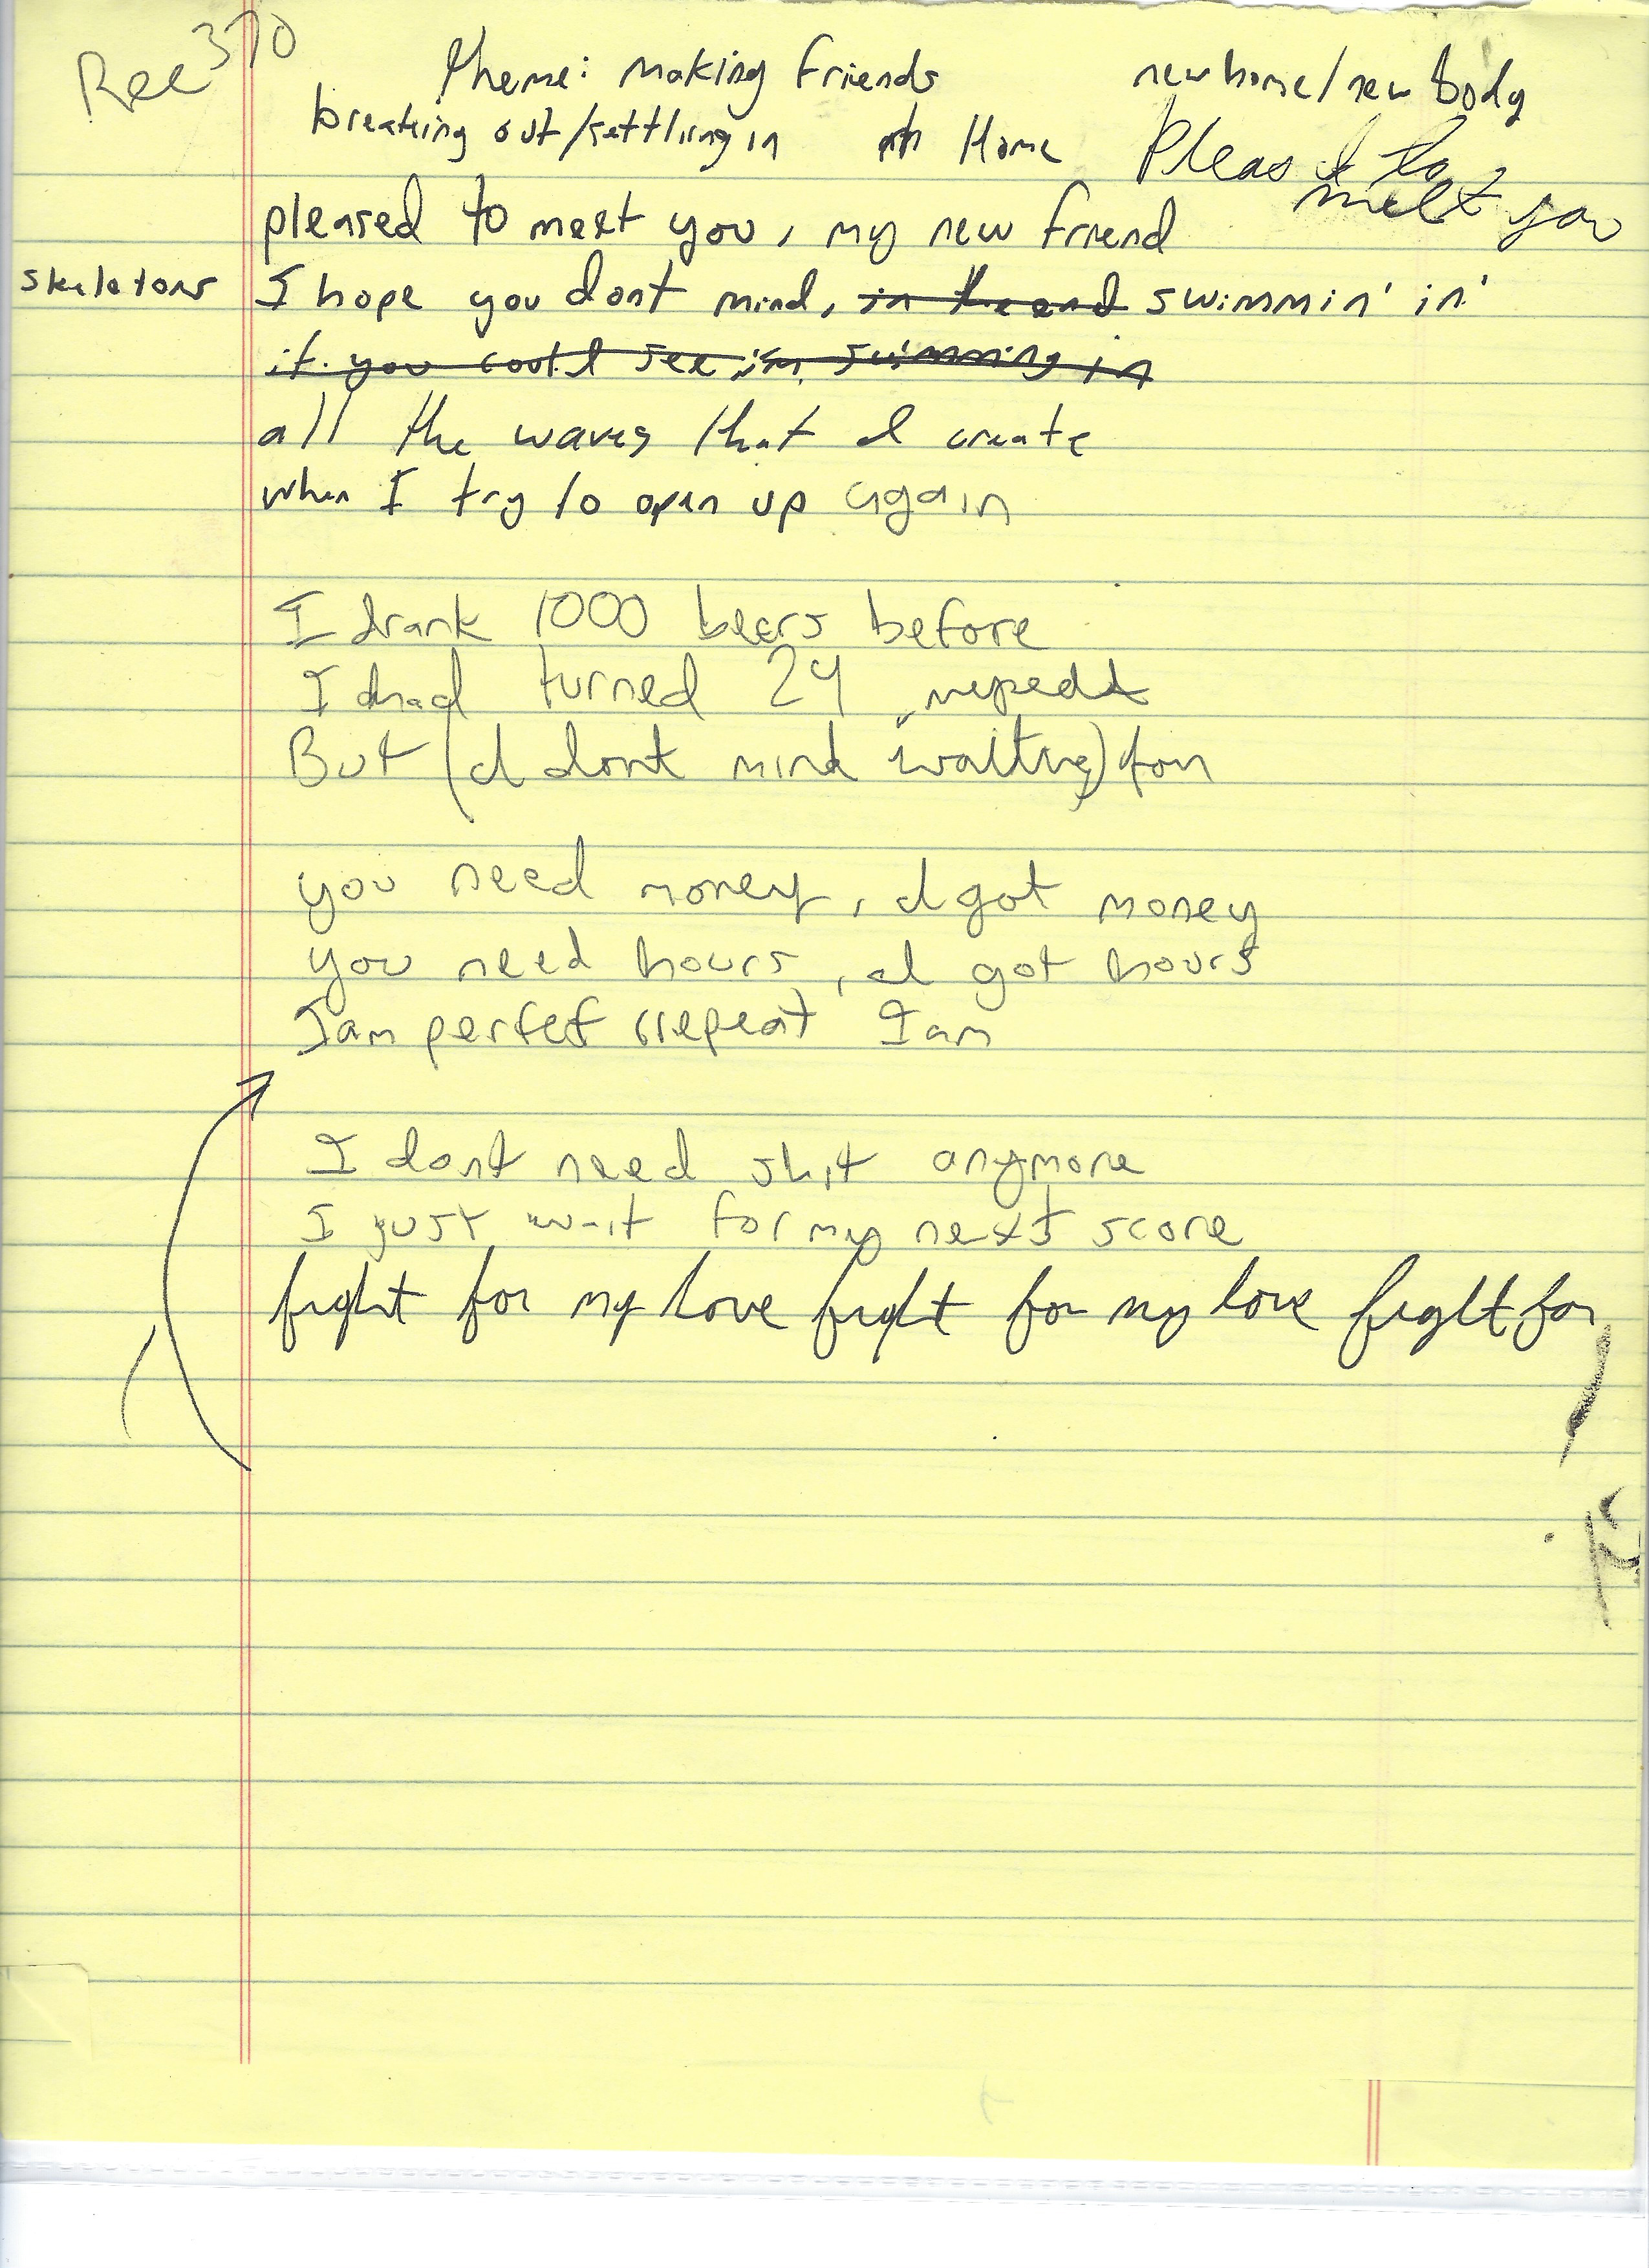 Rec 370
theme: making friends
new home/new body
breaking out/settling in
Home
Pleased to
meet you
pleased to meet you, my new friend
skeletons
I hope you dont mind, in the end swimmin' in'
if you could see im swimming in
all the waves that I create
when I try to open up again
I drank 1000 beers before
I had turned 24 repeat
But (I dont mind waiting) for
you need money, I got money
you need hours, I got hours
I am perfet (repeat I am
I dont need shit anymore
I just wait for my next score
fight for my love fight for my love fight for